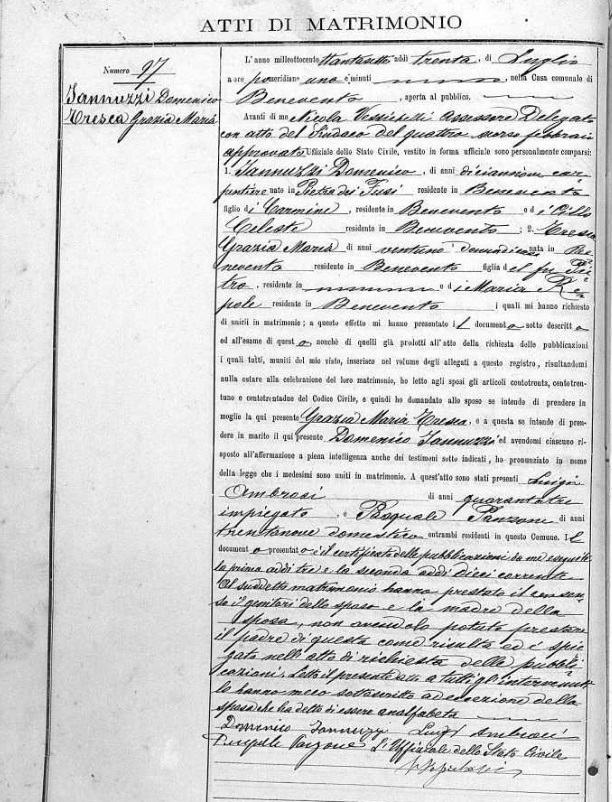 ATTI DI MATRIMONIO
Numero 97
Iannuzzi Domenico
Tresca Grazia Maria
L'anno milleottocento ttantasette addì trenta, di Luglio
a ore pomeridiane una e minuti , nella Casa comunale di
Benevento , aperta al pubblico.
Avanti di me Nicola Assessore Delegato
con atto del Sindaco del quattro febbraio
approvato Uffiziale dello Stato Civile, vestito in forma ufficiale sono personalmente comparsi:
1. Iannuzzi Domenico, di anni diciannove car
pentiere nato in Pietra dei Fusi residente in Benevento
figlio di Carmine , residente in Benevento e di
Celeste residente in Benevento ; 2. Tresca
Grazia Maria di anni ventuno nata in Be
nevento residente in Benevento figlia del fu Pie
tro , residente in e di Maria Re
pole residente in Benevento i quali mi hanno richiesto
di unirli in matrimonio; a questo effetto mi hanno presentato il documento sotto descritto
ed all'esame di questo nonchè di quelli già prodotti all'atto della richiesta delle pubblicazioni
i quali tutti, muniti del mio visto, inserisco nel volume degli allegati a questo registro, risultandomi
nulla ostare alla celebrazione del loro matrimonio, ho letto agli sposi gli articoli centotrenta, centotren-
tuno e centotrentadue del Codice Civile, e quindi ho domandato allo sposo se intende di prendere in
moglie la qui presente Grazia Maria Tresca, e a questa se intende di pren-
dere in marito il qui presente Domenico Iannuzzi et avendomi ciascuno ri-
sposto all'affermazione a piena intelligenza anche dei testimoni sotto indicati, ho pronunziato in nome
della legge che i medesimi sono uniti in matrimonio. A quest'atto sono stati presenti Luigi
Ambrosi di anni quarantatre
impiegato e Pasquale Panzone di anni
trentanove domestico entrambi residenti in questo Comune. Il
documento presentato è il certificato delle pubblicazioni da me eseguite
la prima addì tre e la seconda addì dieci corrente
Al suddetto matrimonio hanno prestato il consen
so il genitori dello sposo e la madre della
sposa, non avendolo potuto prestare
il padre di questa come risulta ed è spie
gato nell'atto di richiesta delle pubbli
cazioni. Letto il presente atto a tutti gli intervenuti
lo hanno meco sottoscritto ad eccezione della
sposa che ha detto di essere analfabeta
Domenico Iannuzzi Luigi Ambrosi
Pasquale Panzone L'Uffiziale dello Stato Civile